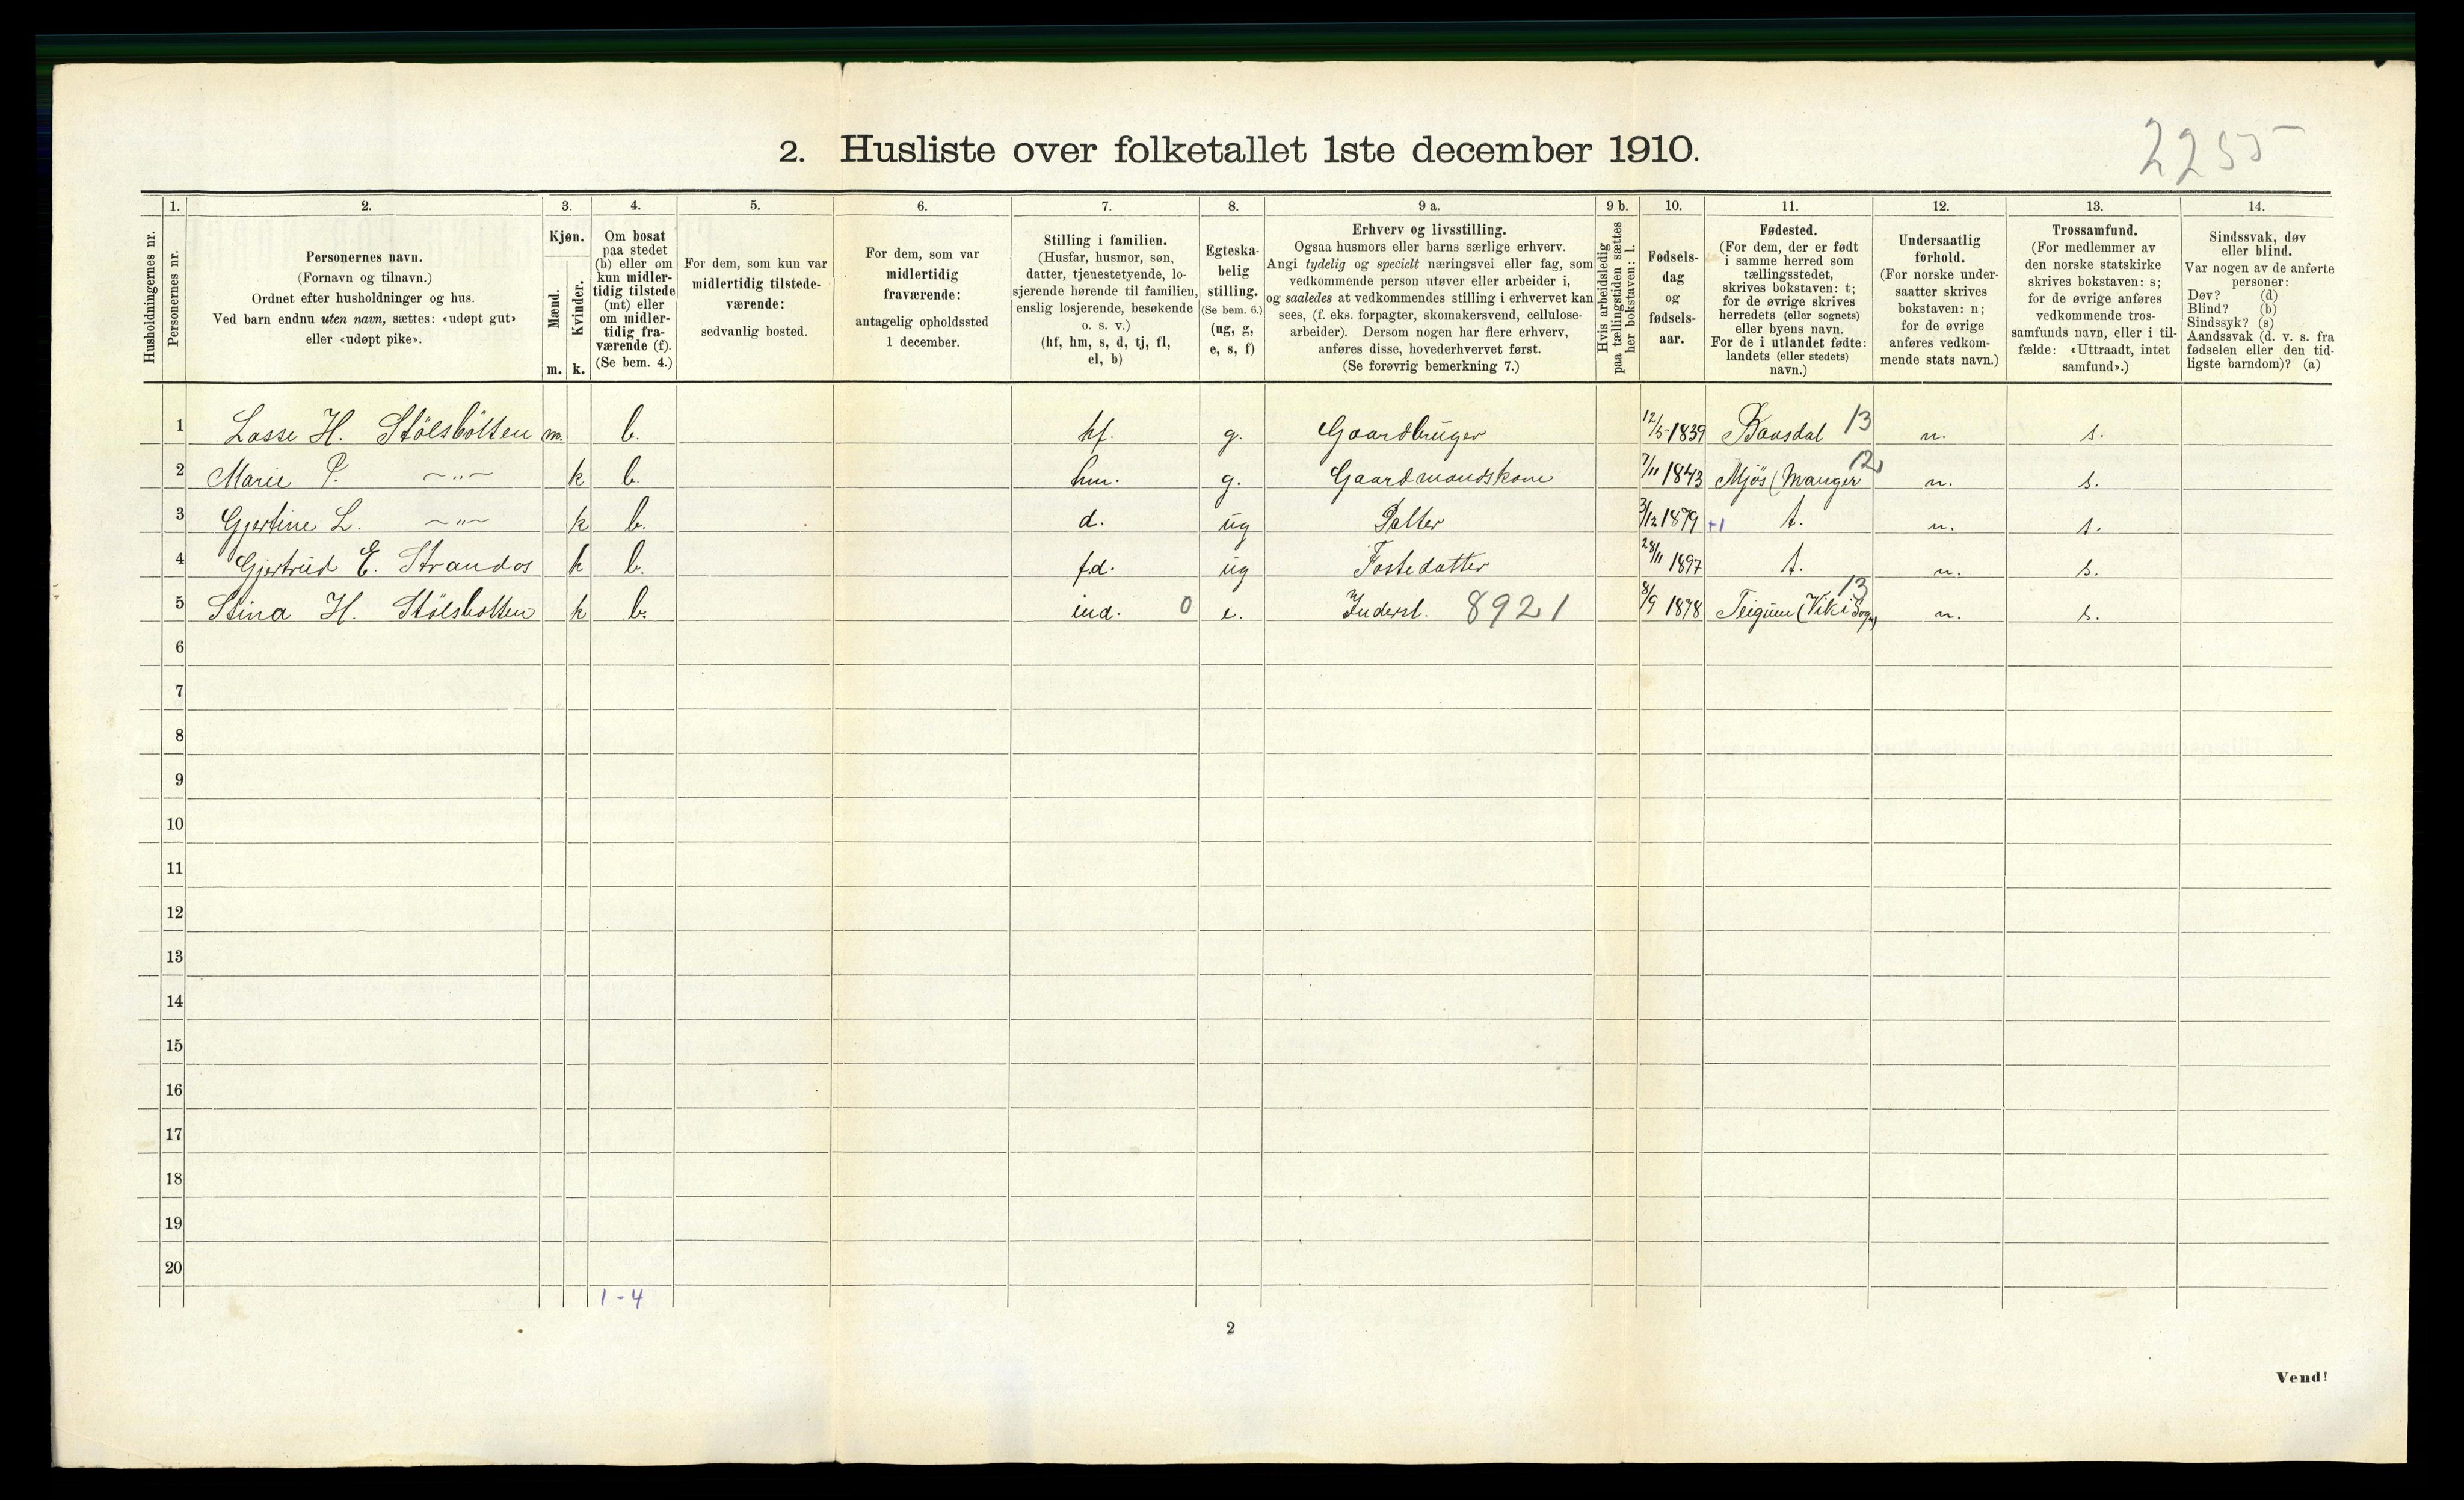 2. Husliste over folketallet 1ste december 1910.
2255
1. 2. 3. 4. 5. 6. 7. 8. 9 a. 9 b. 10. 11. 12. 13. 14.
Husholdningernes nr.
Personernes nr.
Personernes navn.
(Fornavn og tilnavn.)
Ordnet efter husholdninger og hus.
Ved barn endnu uten navn, sættes: «udøpt gut»
eller «udøpt pike».
Kjøn.
Mænd.
Kvinder.
m. k.
Om bosat
paa stedet
(b) eller om
kun midler-
tidig tilstede
(mt) eller
om midler-
tidig fra-
værende (f).
(Se bem. 4.)
For dem, som kun var
midlertidig tilstede-
værende:
sedvanlig bosted.
For dem, som var
midlertidig
fraværende:
antagelig opholdssted
1 december.
Stilling i familien.
(Husfar, husmor, søn,
datter, tjenestetyende, lo-
sjerende hørende til familien,
enslig losjerende, besøkende
o. s. v.)
(hf, hm, s, d, tj, fl,
el, b)
Egteska-
belig
stilling.
(Se bem. 6.)
(ug, g,
e, s, f)
Erhverv og livsstilling.
Ogsaa husmors eller barns særlige erhverv.
Angi tydelig og specielt næringsvei eller fag, som
vedkommende person utøver eller arbeider i,
og saaledes at vedkommendes stilling i erhvervet kan
sees, (f. eks. forpagter, skomakersvend, cellulose-
arbeider). Dersom nogen har flere erhverv,
anføres disse, hovederhvervet først.
(Se forøvrig bemerkning 7.)
Hvis arbeidsledig
paa tællingstiden sættes
her bokstaven: l.
Fødsels-
dag
og
fødsels-
aar.
Fødested.
(For dem, der er født
i samme herred som
tællingsstedet,
skrives bokstaven: t;
for de øvrige skrives
herredets (eller sognets)
eller byens navn.
For de i utlandet fødte:
landets (eller stedets)
navn.)
Undersaatlig
forhold.
(For norske under-
saatter skrives
bokstaven: n;
for de øvrige
anføres vedkom-
mende stats navn.)
Trossamfund.
(For medlemmer av
den norske statskirke
skrives bokstaven: s;
for de øvrige anføres
vedkommende tros-
samfunds navn, eller i til-
fælde: «Uttraadt, intet
samfund».)
Sindssvak, døv
eller blind.
Var nogen av de anførte
personer:
Døv? (d)
Blind? (b)
Sindssyk? (s)
Aandssvak (d. v. s. fra
fødselen eller den tid-
ligste barndom)? (a)
1 Lasse H. Stölsbötten m. b. hf. g. Gaardbruger 12/5 1839 13 n. s.
2 Marie P. —"— k b. hm. g. Gaardmandskone 7/11 1843 Mjös (Manger 12 n. s.
3 Gjertine L. —"— k b. d. ug Datter 3/12 1879 +1 t. n. s.
4 Gjertrud E. Strandos k b. f.d. ug Fostedatter 28/11 1897 t. n. s.
5 Stina H. Stölsbotten k b. ind. 0 e. Inderst. 8921 8/9 1878 Teigum (Vik i Sogn) 13 n. s.
6
7
8
9
10
11
12
13
14
15
16
17
18
19
20
1-4
2
Vend!